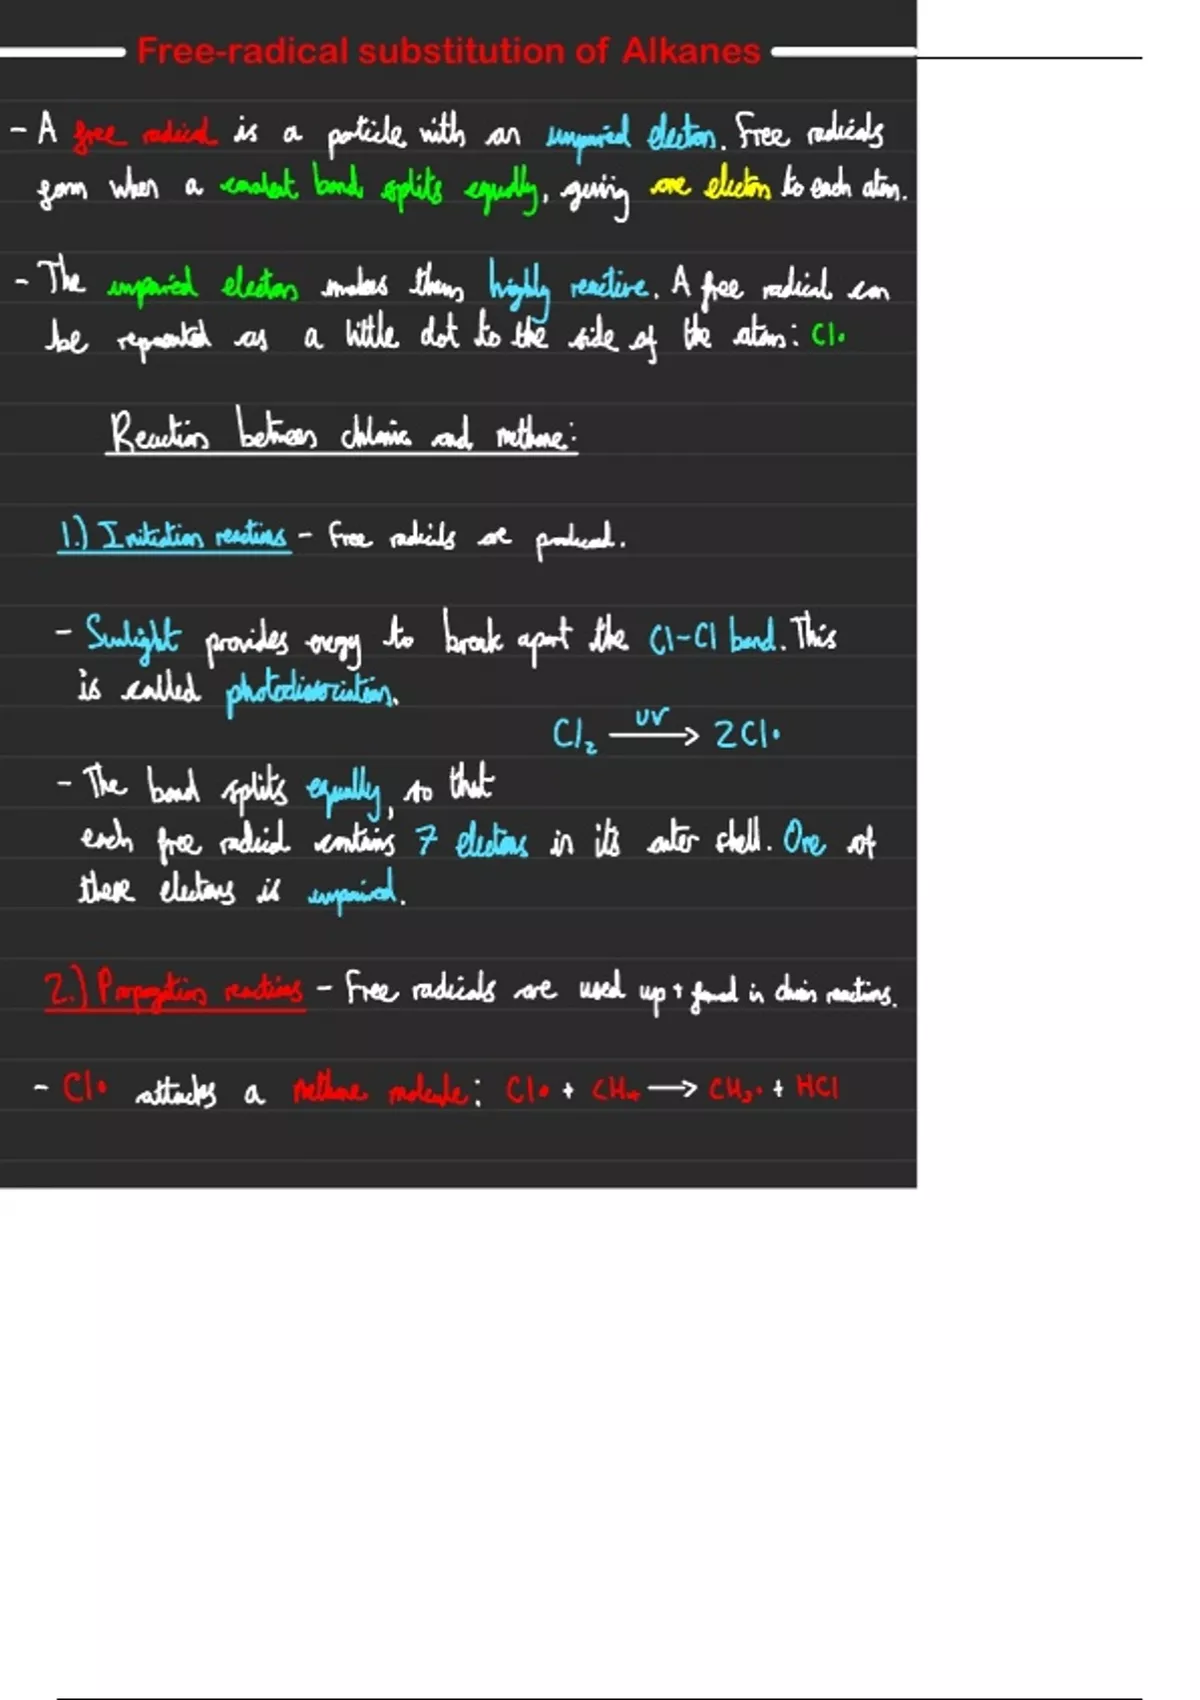 Free-radical substitution of Alkanes
- A free radical is a particle with an unpaired electron. Free radicals
form when a covalent bond splits equally, giving one electron to each atom.
- The unpaired electron makes them highly reactive. A free radical can
be represented as a little dot to the side of the atom: Cl•
Reaction between chlorine and methane:
1.) Initiation reactions - Free radicals are produced.
- Sunlight provides energy to break apart the Cl-Cl bond. This
is called photodissociation.
Cl₂ UV → 2Cl•
- The bond splits equally, so that
each free radical contains 7 electrons in its outer shell. One of
these electrons is unpaired.
2.) Propagation reactions - Free radicals are used up + formed in chain reactions.
- Cl• attacks a methane molecule: Cl• + CH₄ → CH₃• + HCl